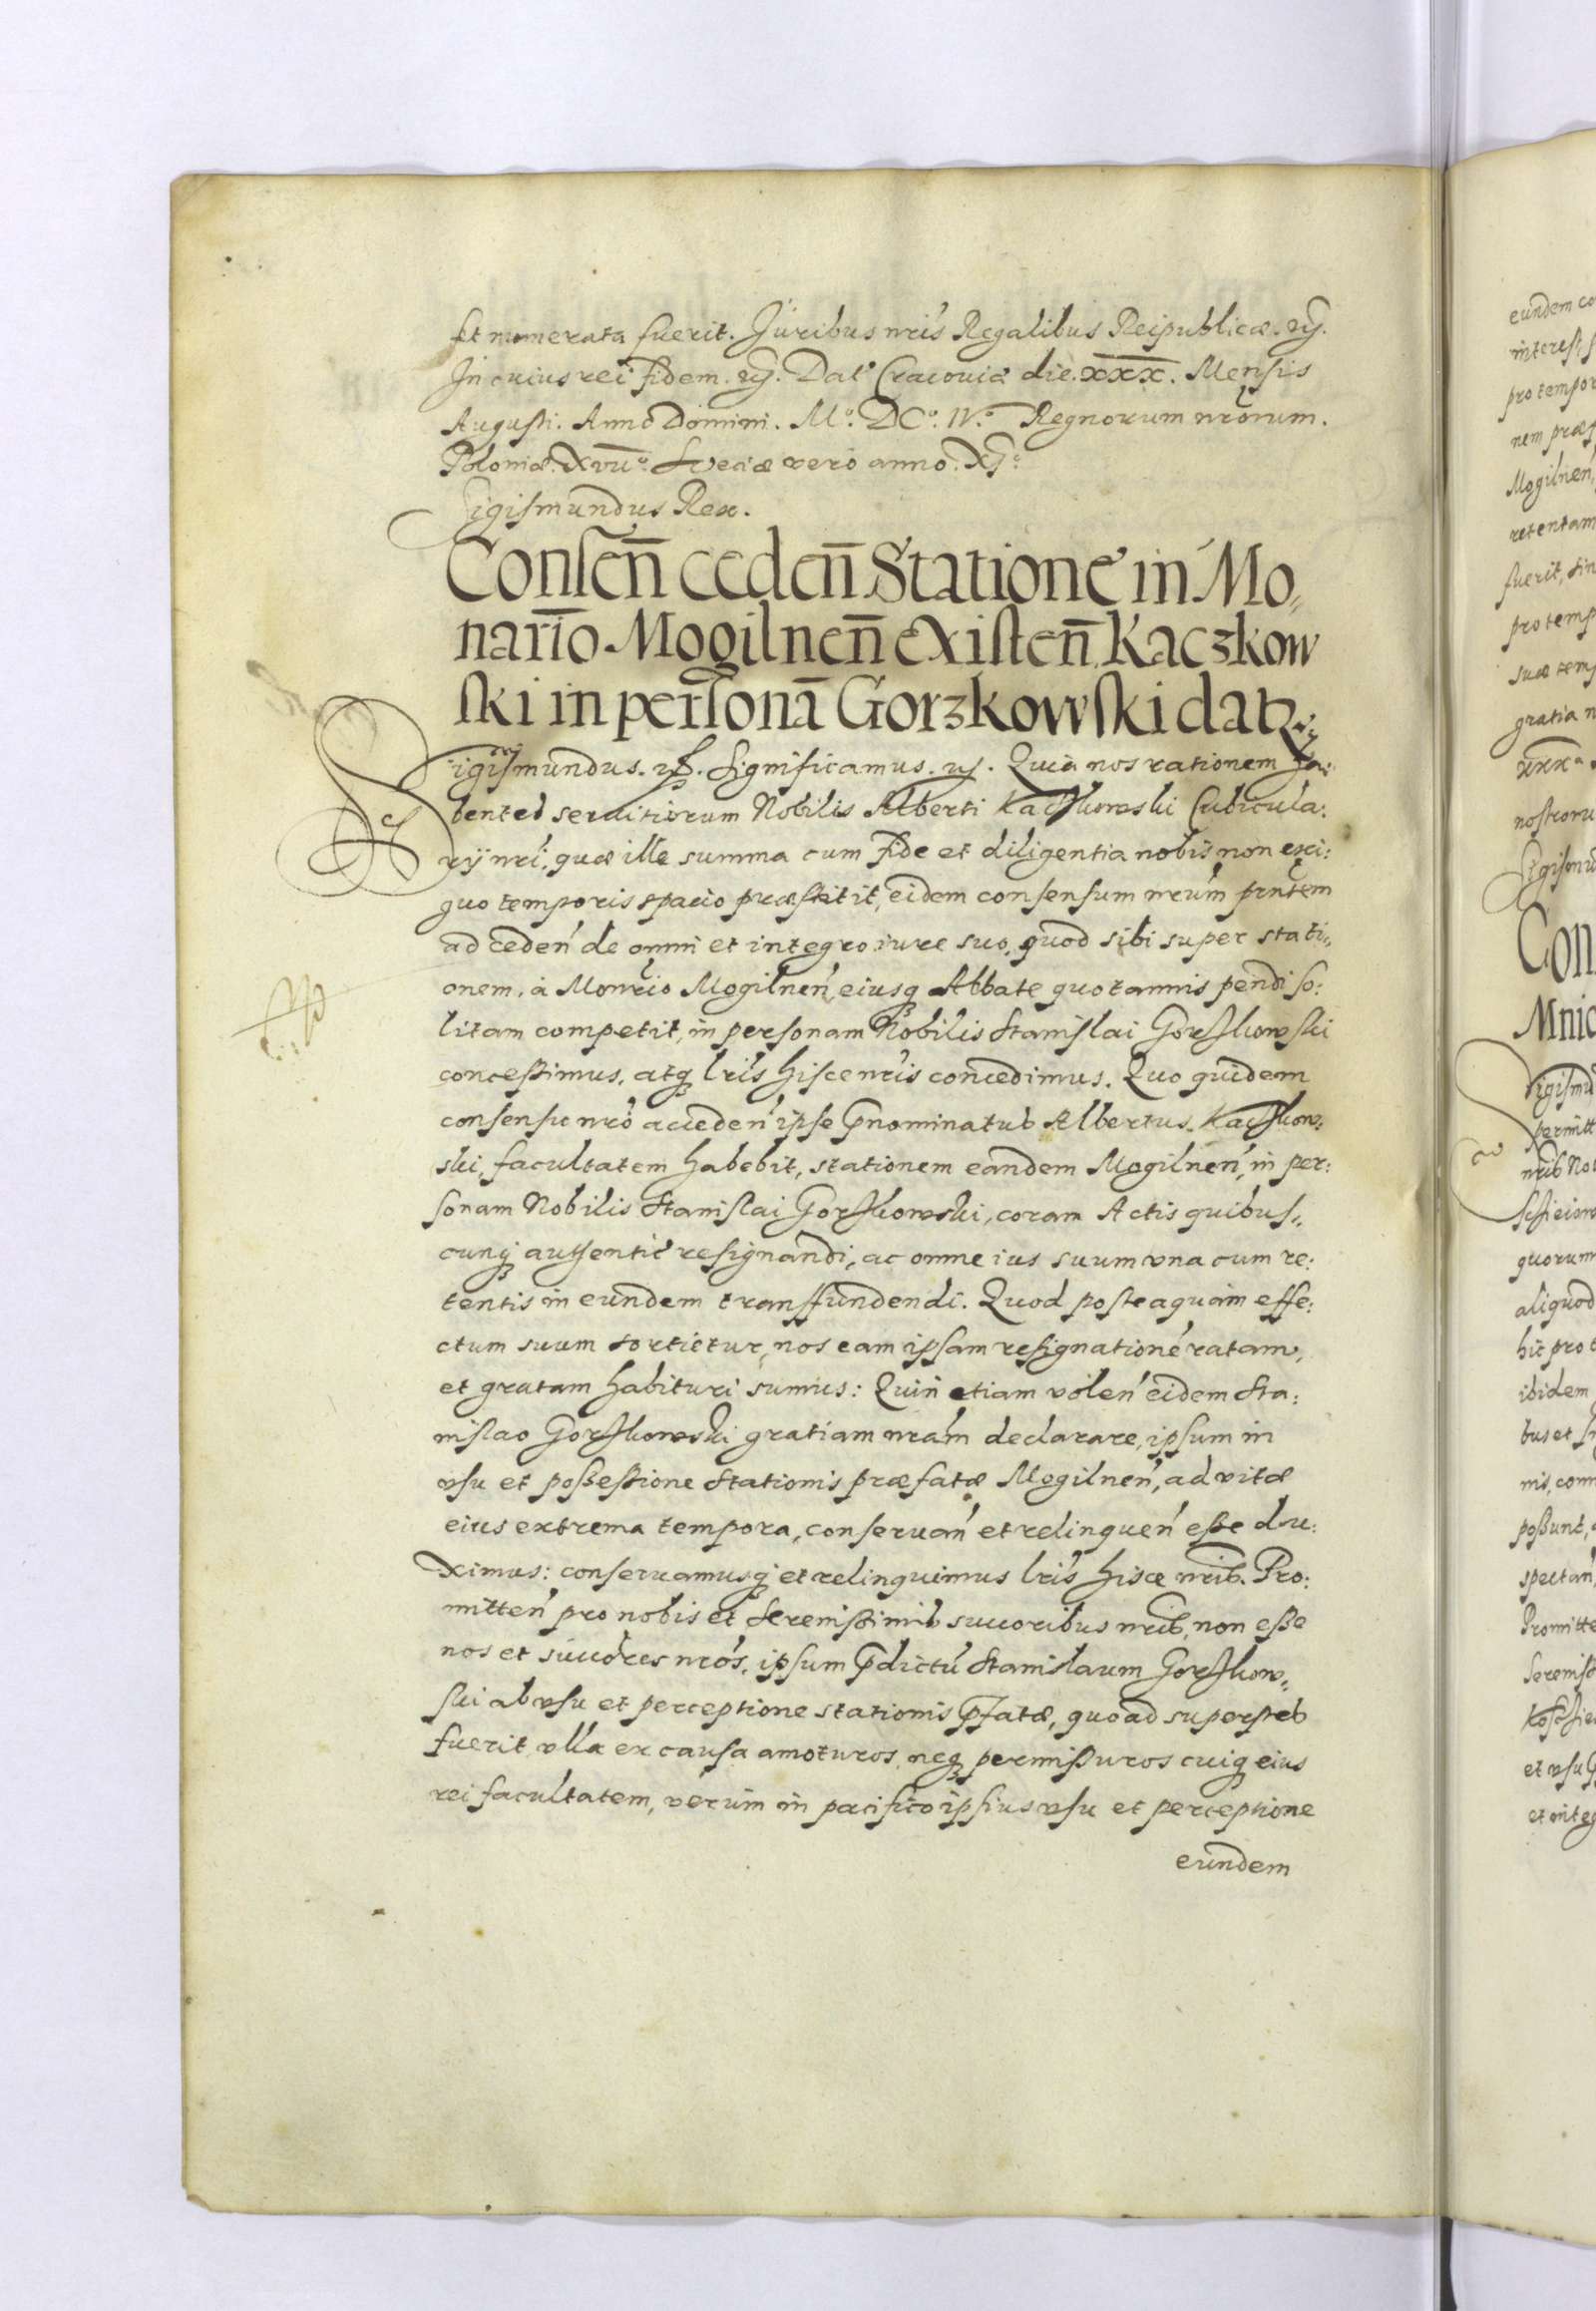 set numerata fuerit. Juribus nris Regalibus Reipublicæ. etc.
In cuius rei fidem. etc. Dat Cracoviæ die. XXX. Mensis
Augusti. Anno Domini. Mº. DCº. IVº. Regnorum nrorum.
Poloniæ. XVIIº. Sveciæ vero anno. XIº
Sigismundus Rex.
Consen̄ ceden̄ Statione in Mo„
nario Mogilnen̄ existen̄ Kaczkow
ski in personā Gorzkowski datꝫ
Sigismundus. etc. Significamus. etc. Quia nos rationem ha:
bentes servitiorum Nobilis Alberti Kaczkowski Cubicula:
rij nri: quæ ille summa cum fide et diligentia nobis non exi:
guo temporis spacio præstitit, eidem consensum nrum prntem
ad ceden de omni et integro iure suo, quod sibi super stati„
onem, à Monrio Mogilnen, eiusq Abbate quotannis pendi so:
litam competit, in personam Nobilis Stanislai Gorzkowski
concessimus, atq lris hisce nris concedimus. Quo quidem
consensu nro acceden ipse prnominatus Albertus Kaczkow:
ski, facultatem habebit, stationem eandem Mogilnen, in per:
sonam Nobilis Stanislai Gorzkowski, coram Actis quibus„
cunq authentice resignandi, ac omne ius suum vna cum re:
tentis in eundem transfundendi. Quod posteaquam effe:
ctum suum sortietur, nos eam ipsam resignatione ratam,
et gratam habituri sumus: Quin etiam volen eidem Sta:
nislao Gorzkowski gratiam nram declarare, ipsum in
vsu et possessione Stationis præfatæ Mogilnen, ad vitæ
eius extrema tempora, conservan et relinquen esse du:
ximus: conservamusq et relinquimus lris hisce nris. Pro:
mitten pro nobis et Serenissimis succoribus nris, non esse
nos et succores nros, ipsum prdictu Stanislaum Gorzkow„
ski ab vsu et perceptione stationis prfatæ, quoad superstes
fuerit vlla ex causa amoturos, neq permissuros cuiq eius
rei facultatem, verum in pacifico ipsius vsu et perceptione
eundem